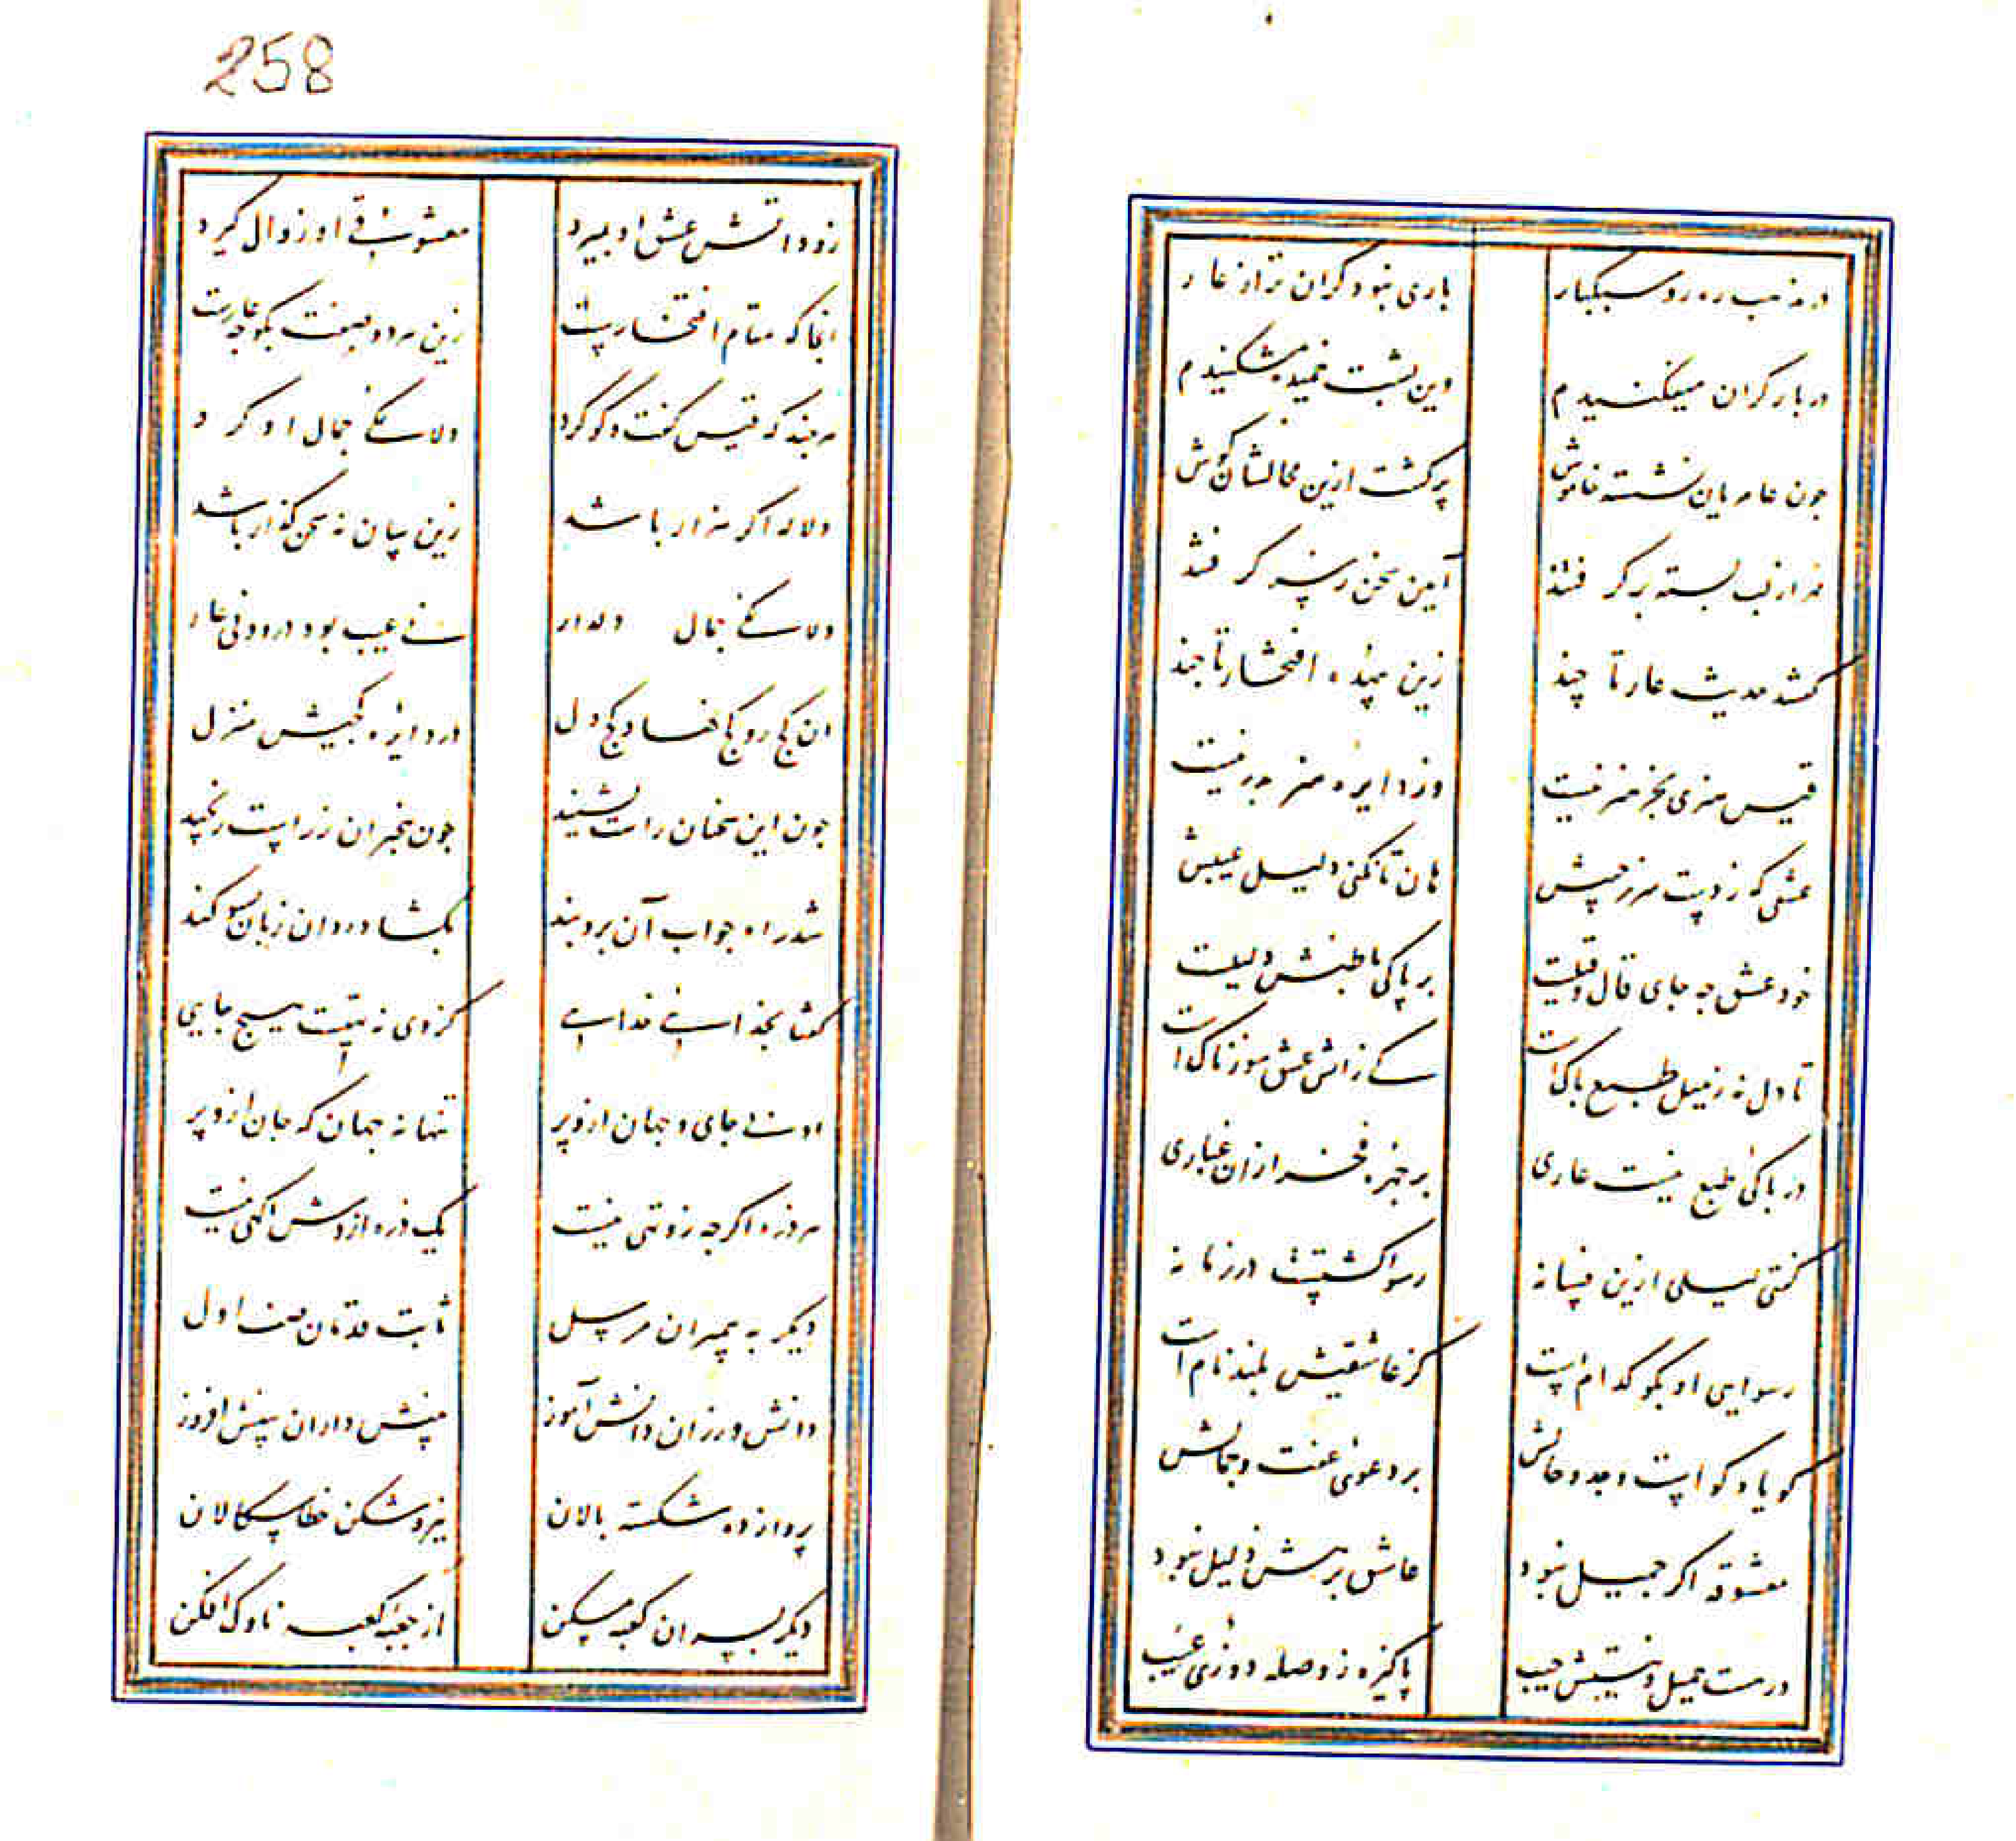 در مذهب رهرو سبکبار باری نبود گران تر از عار
در بار گران میفکنیدم وین پشت خمیده مشکنیدم
چون عامریان نشسته خاموش پر گشت ازین مقالشان گوش
مهر از لب بسته بر گرفتند آیین سخن ز سر گرفتند
گفتند حدیث عار تا چند زین بیهده افتخار تا چند
قیس هنری بجز هنر نیست وز دایره هنر بدر نیست
عشقی که زدست سر ز جیبش هان تا نکنی دلیل عیبش
خود عشق چه جای قال و قیلست بر پاکی باطنش دلیلست
تا دل نه ز میل طبع پاک است کی ز آتش عشق سوزناک است
در پاکی طبع نیست عاری بر چهره فخر از ان غباری
گفتی لیلی ازین فسانه رسوا گشتست در زمانه
رسوایی او بگو کدام است کز عاشقیش بلند نام است
گویا و گواست وجد و حالش بر دعوی عفت و جمالش
معشوقه اگر جمیل نبود عاشق برهش ذلیل نبود
ور هست جمیل و نیستش جیب پاکیزه ز وصله دوزی عیب
258
زود آتش عشق او بمیرد معشوقی او زوال گیرد
انجا که مقام افتخارست زین هر دو صفت بگو چه عارست
هر چند که قیس گفت و گو کرد دلالگی جمال او کرد
دلاله اگر هزار باشد زین سان نه سخن گذار باشد
دلالگی جمال دلدار نی عیب بود درو نی عار
ان کج رو کج نهاد کج دل در دایره کجیش منزل
چون این سخنان راست بشنید چون بیخبران ز راست رنجید
شد راه جواب آن برو بند بگشاد در ان زبان بسوگند
گفتا بخدایی خدایی کز وی نه تهیست هیچ جایی
او نی جای و جهان ازو پر تنها نه جهان که جان ازو پر
هر ذره اگرچه زو تهی نیست یک ذره ازوش اگهی نیست
دیگر به پیمبران مرسل ثابت قدمان صف اول
دانش ورزان دانش آموز بینش داران بینش افروز
پرواز ده شکسته بالان نیرو شکن خطا سگالان
دیگر بسران کعبه مسکن از جعبه کعبه ناوک افکن